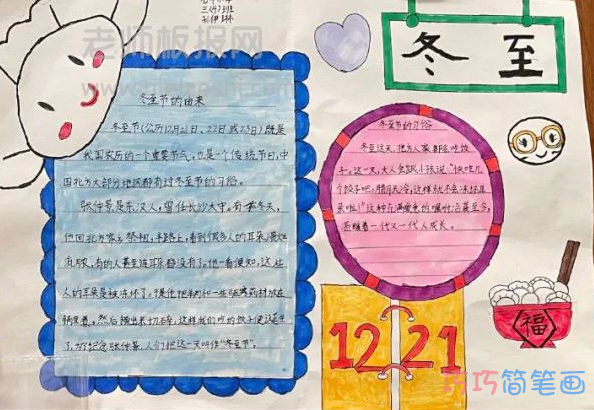 三(1)班
老师板报网
冬至
冬至节的由来
冬至节(公历12月21日、22日或23日)既是
我国农历的一个重要节气,也是一个传统节日,中
国北方大部分地区都有过冬至节的习俗。
张仲景是东汉人,曾任长沙太守,有一年冬天,
他回北方家乡,路上,看到很多人的耳朵
有的人甚至连耳朵都没有了,他一看便知,这些
人的耳朵是被冻坏了。于是他把羊肉和一些驱寒药材放在
锅里煮。然后捞出来切碎,这样我们吃的饺子便诞生
了,为了纪念张仲景,人们把这一天叫作“冬至节”。
冬至节的习俗
冬至这天,北方人家都会吃饺
子。这一天,大人会跟小孩说:“快吃几
个饺子吧,腊月天冷,这样就不会冻坏耳
朵啦!”这种充满爱意的嘱咐沿袭至今,
若随着一代又一代人成长。
12 21
福
巧巧简笔画